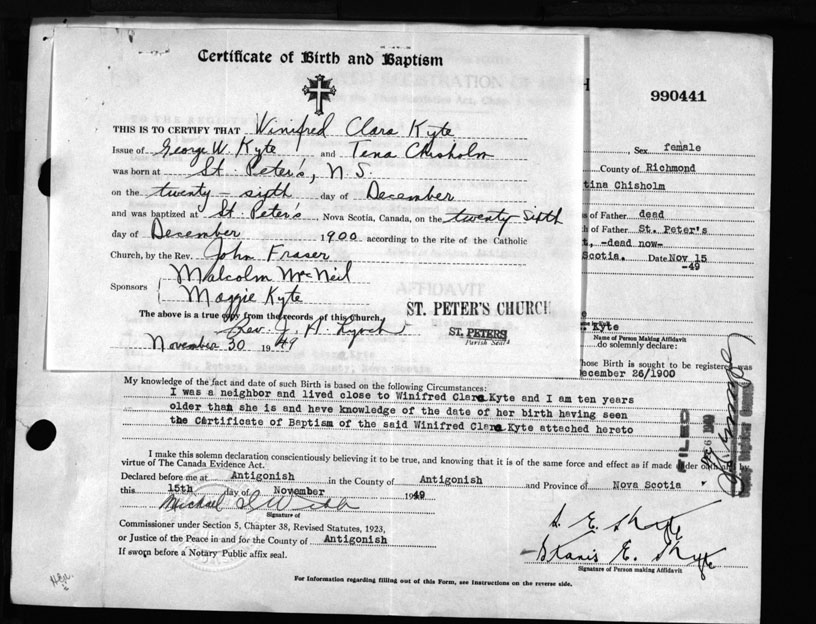 Certificate of Birth and Baptism
THIS IS TO CERTIFY THAT Winifred Clara Kyte
Issue of George W. Kyte and Tena Chisholm
was born at St. Peter's, N.S.
on the twenty-sixth day of December
and was baptized at St. Peter's, Nova Scotia, Canada, on the twenty sixth
day of December 1900 according to the rite of the Catholic
Church, by the Rev. John Fraser
Sponsors Malcolm McNeil
Maggie Kyte
The above is a true copy from the records of this Church,
Rev. J. H.
November 30 1949
ST. PETER'S CHURCH
ST. PETERS
Parish Seal
990441
, Sex female
County of Richmond
tina Chisholm
of Father dead
of Father St. Peter's
t, -dead now-
Scotia. Date Nov 15
-49
Kyte
Name of Person Making Affidavit
do solemnly declare:
hose Birth is sought to be registered was
ecember 26/1900
My knowledge of the fact and date of such Birth is based on the following Circumstances:
I was a neighbor and lived close to Winifred Clara Kyte and I am ten years
older than she is and have knowledge of the date of her birth having seen
the Certificate of Baptism of the said Winifred Clara Kyte attached hereto
I make this solemn declaration conscientiously believing it to be true, and knowing that it is of the same force and effect as if made under oath
virtue of The Canada Evidence Act.
Declared before me at Antigonish in the County of Antigonish and Province of Nova Scotia
this 15th day of November 1949
Michael
Signature of
Commissioner under Section 5, Chapter 38, Revised Statutes, 1923,
or Justice of the Peace in and for the County of Antigonish
If sworn before a Notary Public affix seal.
Stanis E.
Signature of Person making Affidavit
For Information regarding filling out of this Form, see Instructions on the reverse side.
FILED